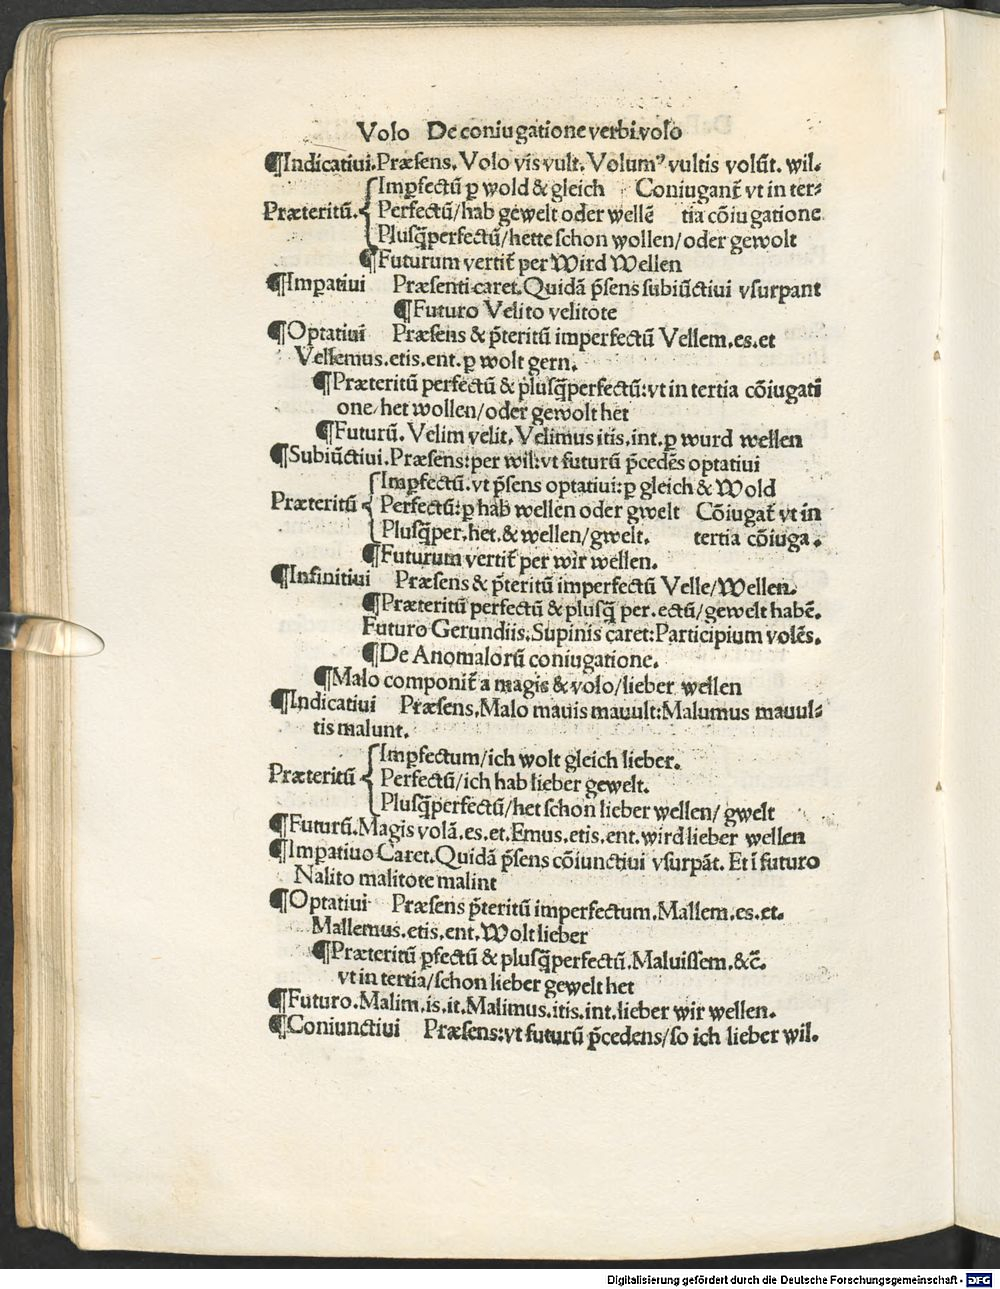 Volo De coniugatione verbi.volo
¶Indicatiui.Præsens. Volo vis vult. Volumꝰ vultis volūt. wil.
⎧Imꝑfectū ꝑ wold & gleich Coniugant̄ vt in ter⸗
Præteritū.⎨Perfectū/hab gewelt oder wellē tia cōiugatione
⎩Plusq̄perfectū/hette schon wollen/oder gewolt
¶Futurum vertit̄ per Wird Wellen
¶Imꝑatiui Præsenti caret.Quidā p̄sens subiūctiui vsurpant
¶Futuro Velito velitote
¶Optatiui Præsens & p̄teritū imperfectū Vellem.es.et
Vellemus.etis.ent.ꝑ wolt gern.
¶Præteritū perfectū & plusq̄perfectū:vt in tertia cōiugati
one/het wollen/oder gewolt het
¶Futurū. Velim velit. Velimus itis.int.ꝑ wurd wellen
¶Subiūctiui.Præsens:per wil:vt futurū p̄cedēs optatiui
⎧Imꝑfectū.vt p̄sens optatiui:ꝑ gleich & Wold
Præteritū⎨Perfectū:ꝑ hab wellen oder gwelt Cōiugat̄ vt in
⎩Plusq̄per.het.& wellen/gwelt. tertia cōiuga.
¶Futurum vertit̄ per wir wellen.
¶Infinitiui Præsens & p̄teritū imperfectū Velle/Wellen.
¶Præteritū perfectū & plusq̄ per.ectū/gewelt habē.
Futuro Gerundiis.Supinis caret:Participium volēs.
¶De Anomalorū coniugatione.
¶Malo componit̄ a magis & volo/lieber wellen
¶Indicatiui Præsens.Malo mauis mauult:Malumus mauul⸗
tis malunt.
⎧Imꝑfectum/ich wolt gleich lieber.
Præteritū⎨Perfectū/ich hab lieber gewelt.
⎩Plusq̄perfectū/het schon lieber wellen/ gwelt
¶Futurū.Magis volā.es.et.Emus.etis.ent.wird lieber wellen
¶Imꝑatiuo Caret.Quidā p̄sens cōiunctiui vsurpāt. Et ī futuro
Nalito malitote malint
¶Optatiui Præsens p̄teritū imperfectum.Mallem.es.et.
Mallemus.etis.ent.Wolt lieber
¶Præteritū ꝑfectū & plusq̄perfectū.Maluissem.&c̄.
vt in tertia/schon lieber gewelt het
¶Futuro.Malim.is.it.Malimus.itis.int.lieber wir wellen.
¶Coniunctiui Præsens:vt futurū p̄cedens/so ich lieber wil.
Digitalisierung gefördert durch die Deutsche Forschungsgemeinschaft - DFG